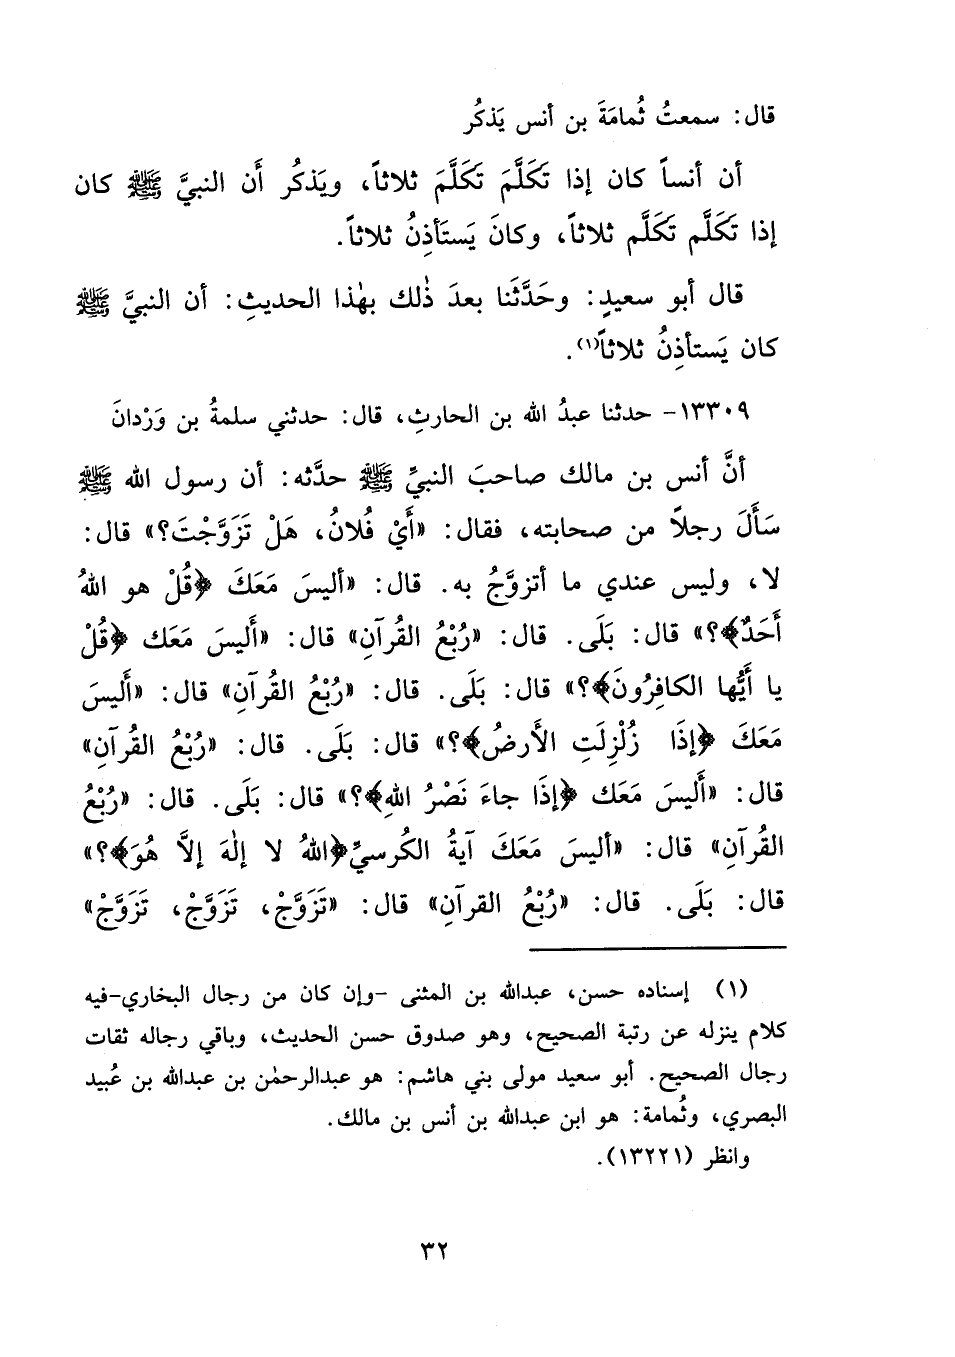 قال: سمعتُ ثُمامَةَ بن أنس يَذكُر
أن أنساً كان إذا تَكَلَّمَ تَكَلَّمَ ثلاثاً، ويَذكُر أَن النبيَّ ﷺ كان
إذا تَكَلَّم تَكَلَّم ثلاثاً، وكانَ يَستَأذِنُ ثلاثاً.
قال أبو سعيدٍ: وحَدَّثَنا بعدَ ذٰلك بهٰذا الحديثِ: أن النبيَّ ﷺ
كان يَستأذِنُ ثلاثاً(١).
١٣٣٠٩- حدثنا عبدُ الله بن الحارثِ، قال: حدثني سلمةُ بن وَرْدانَ
أنَّ أنس بن مالك صاحبَ النبيِّ ﷺ حدَّثه: أن رسول الله ﷺ
سَأَلَ رجلاً من صحابته، فقال: «أَيْ فُلانُ، هَلْ تَزَوَّجْتَ؟» قال:
لا، وليس عندي ما أتزوَّجُ به. قال: «أليسَ مَعَكَ ﴿قُلْ هو اللهُ
أَحَدٌ﴾؟» قال: بَلَى. قال: «رُبْعُ القُرآنِ» قال: «أَليسَ مَعَك ﴿قُلْ
يا أَيُّها الكافِرُونَ﴾؟» قال: بَلَى. قال: «رُبْعُ القُرآنِ» قال: «أَليسَ
مَعَكَ ﴿إذَا زُلْزِلَتِ الأَرضُ﴾؟» قال: بَلَى. قال: «رُبْعُ القُرآنِ»
قال: «أَليسَ مَعَك ﴿إذَا جاءَ نَصْرُ اللهِ﴾؟» قال: بَلَى. قال: «رُبْعُ
القُرآنِ» قال: «أليسَ مَعَكَ آيةُ الكُرسيِّ﴿اللهُ لا إلٰهَ إلَّا هُوَ﴾؟»
قال: بَلَى. قال: «رُبْعُ القرآنِ» قال: «تَزَوَّجْ، تَزَوَّجْ، تَزَوَّجْ»
(١) إسناده حسن، عبدالله بن المثنى -وإن كان من رجال البخاري-فيه
كلام ينزله عن رتبة الصحيح، وهو صدوق حسن الحديث، وباقي رجاله ثقات
رجال الصحيح. أبو سعيد مولى بني هاشم: هو عبدالرحمٰن بن عبدالله بن عُبيد
البصري، وثُمامة: هو ابن عبدالله بن أنس بن مالك.
وانظر (١٣٢٢١).
٣٢